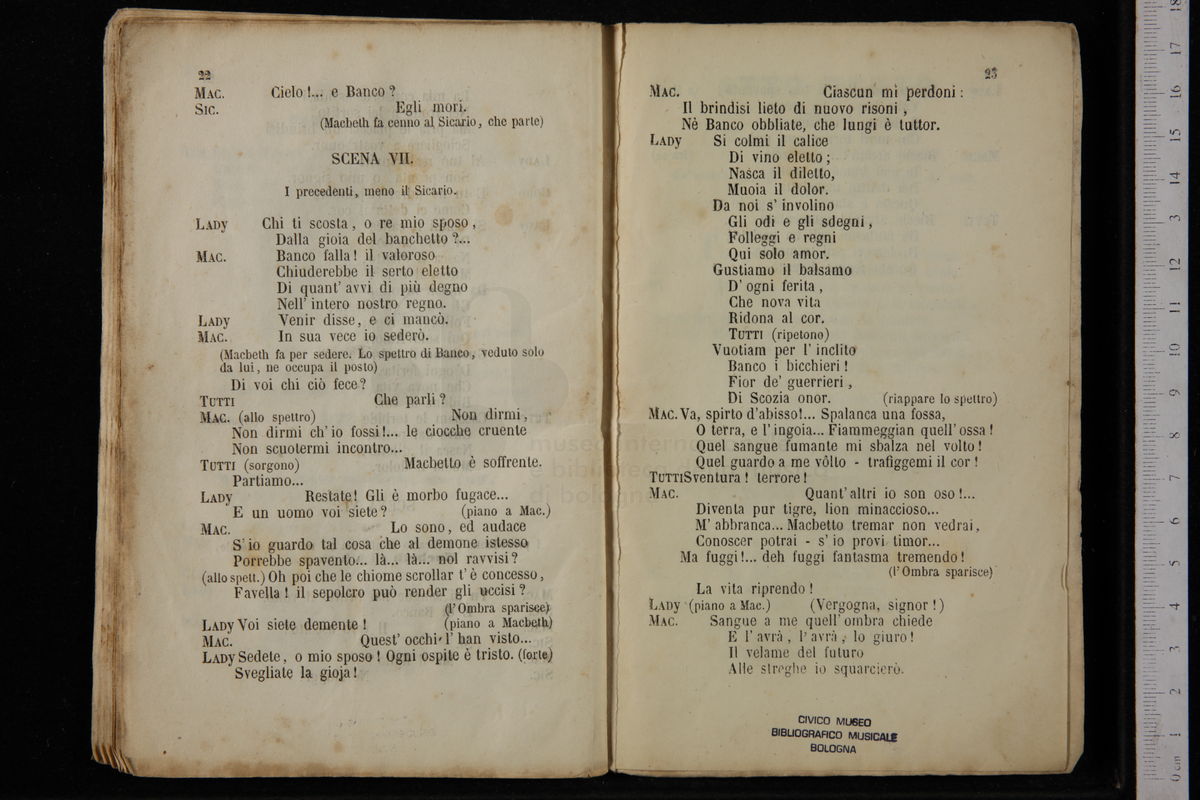 22
MAC. Cielo!... e Banco?
SIC. Egli morì.
(Macbeth fa cenno al Sicario, che parte)
SCENA VII.
I precedenti, meno il Sicario.
LADY Chi ti scosta, o re mio sposo,
Dalla gioia del banchetto?...
MAC. Banco falla! il valoroso
Chiuderebbe il serto eletto
Di quant' avvi di più degno
Nell' intero nostro regno.
LADY Venir disse, e ci mancò.
MAC. In sua vece io sederò.
(Macbeth fa per sedere. Lo spettro di Banco, veduto solo
da lui, ne occupa il posto)
Di voi chi ciò fece?
TUTTI Che parli?
MAC. (allo spettro) Non dirmi,
Non dirmi ch' io fossi!... le ciocche cruente
Non scuotermi incontro...
TUTTI (sorgono) Macbetto è soffrente.
Partiamo...
LADY Restate! Gli è morbo fugace...
E un uomo voi siete? (piano a Mac.)
MAC. Lo sono, ed audace
S' io guardo tal cosa che al demone istesso
Porrebbe spavento... là... là... nol ravvisi?
(allo spett.) Oh poi che le chiome scrollar t' è concesso,
Favella! il sepolcro può render gli uccisi?
(l' Ombra sparisce)
LADY Voi siete demente! (piano a Macbeth)
MAC. Quest' occhi l' han visto...
LADY Sedete, o mio sposo! Ogni ospite è tristo. (forte)
Svegliate la gioja!
23
MAC. Ciascun mi perdoni:
Il brindisi lieto di nuovo risoni,
Nè Banco obbliate, che lungi è tuttor.
LADY Si colmi il calice
Di vino eletto;
Nasca il diletto,
Muoia il dolor.
Da noi s' involino
Gli odi e gli sdegni,
Folleggi e regni
Qui solo amor.
Gustiamo il balsamo
D' ogni ferita,
Che nova vita
Ridona al cor.
TUTTI (ripetono)
Vuotiam per l' inclito
Banco i bicchieri!
Fior de' guerrieri,
Di Scozia onor. (riappare lo spettro)
MAC. Va, spirto d'abisso!... Spalanca una fossa,
O terra, e l' ingoia... Fiammeggian quell' ossa!
Quel sangue fumante mi sbalza nel volto!
Quel guardo a me vòlto - trafiggemi il cor!
TUTTI Sventura! terrore!
MAC. Quant' altri io son oso!...
Diventa pur tigre, lion minaccioso...
M' abbranca... Macbetto tremar non vedrai,
Conoscer potrai - s' io provi timor...
Ma fuggi!... deh fuggi fantasma tremendo!
(l' Ombra sparisce)
La vita riprendo!
LADY (piano a Mac.) (Vergogna, signor!)
MAC. Sangue a me quell' ombra chiede
E l' avrà, l' avrà, lo giuro!
Il velame del futuro
Alle streghe io squarcierò.
CIVICO MUSEO
BIBLIOGRAFICO MUSICALE
BOLOGNA